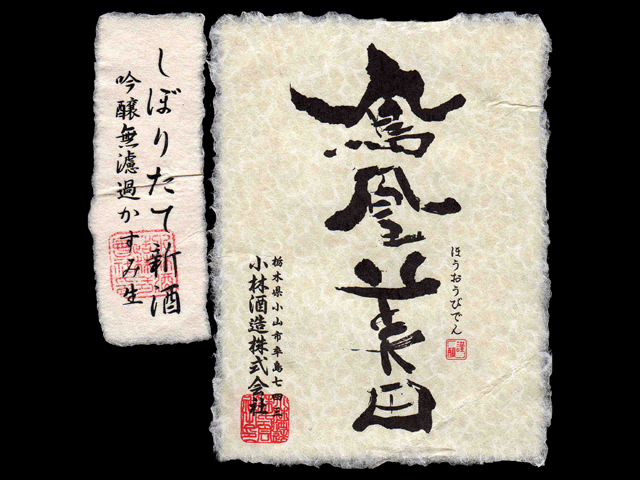 しぼりたて新酒
吟醸無濾過かすみ生
鳳凰美田
ほうおうびでん
栃木県小山市卒島七四三
小林酒造株式会社